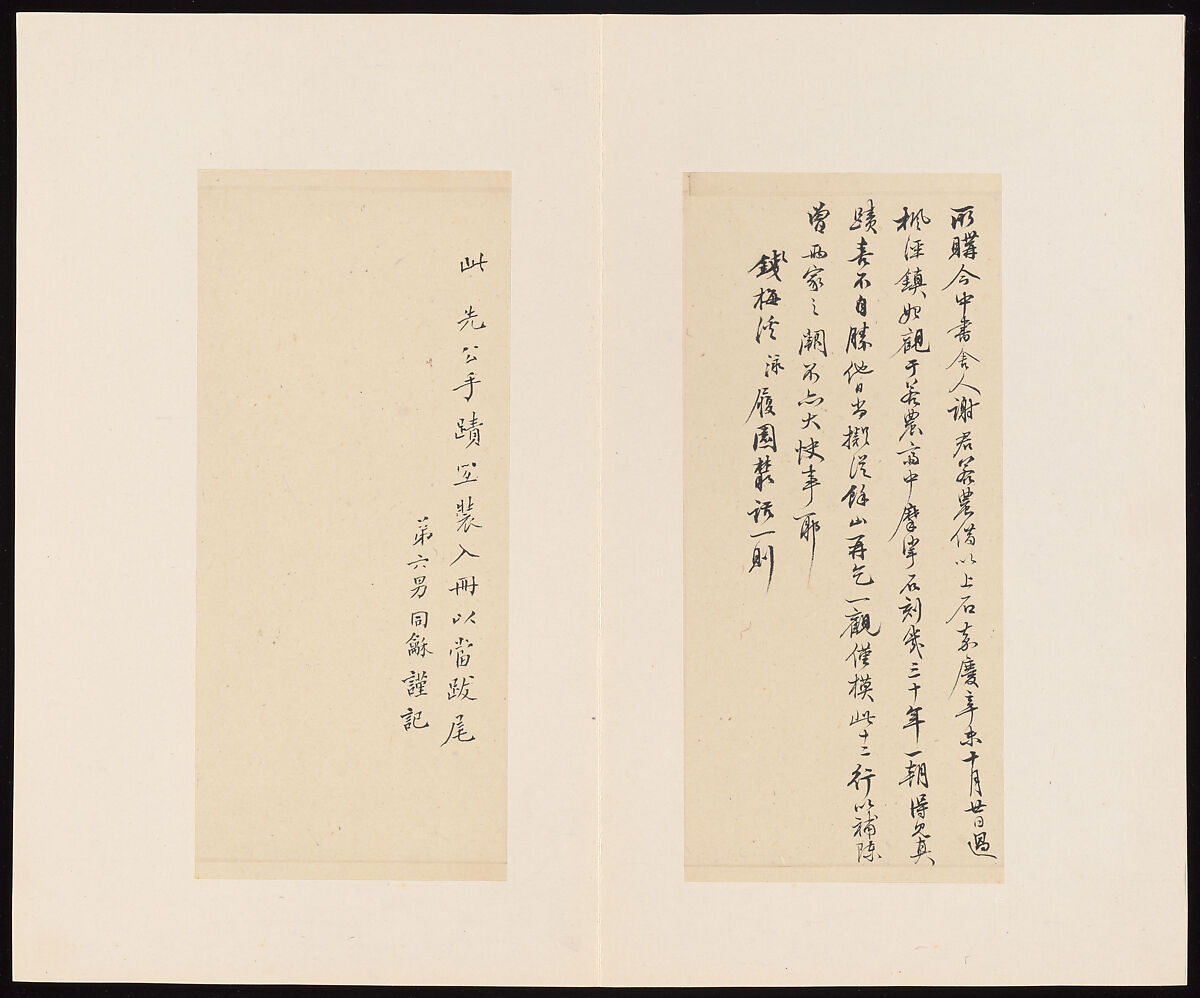 所購今中書舍人謝君若農借以上石嘉慶辛未十月廿日過
楓涇鎮始觀于若農齋中摩挲石刻幾三十年一朝得見真
蹟喜不自勝他日當擬從餘山再乞一觀僅模此十二行以補陳
曾兩家之闕不亦大快事耶
錢梅溪泳履園叢話一則
此先公手蹟宜裝入冊以當跋尾
第六男同龢謹記